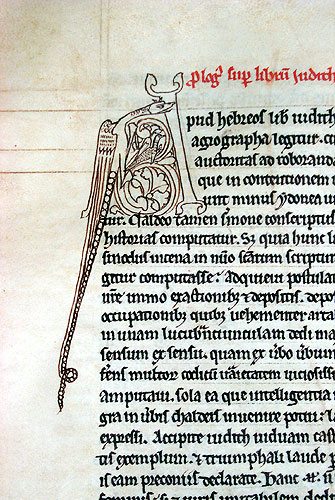 Prologꝰ sup librū Iudith
Apud hebreos lib iudith
agiographa legitur. c
auctoritas ad roboranda
que in contentionem
unt minus ydonea u
tur. Caldeo tamen s̾mone conscriptus
historias computatur. S; quia hunc l
sinodus nicena in nūo sc̄arum scriptur
gitur computasse: adquieui postulat
n̄re immo exactioni. & depositis. depos
occupationib; quib; uehementer arta
in unam lucubrc̄iunculam dedi ma
sensum ex sensu. quam ex ūbo ūbum
fens multor codicū uarietatem uiciosiss
amputaui. sola ea que intelligentia
gra in ūbis chaldeis inuenire potui: la
expressi. Accipite iudith uiduam cast
tis exemplum. & triumphali laude p
is eam preconiis declarate. Hanc